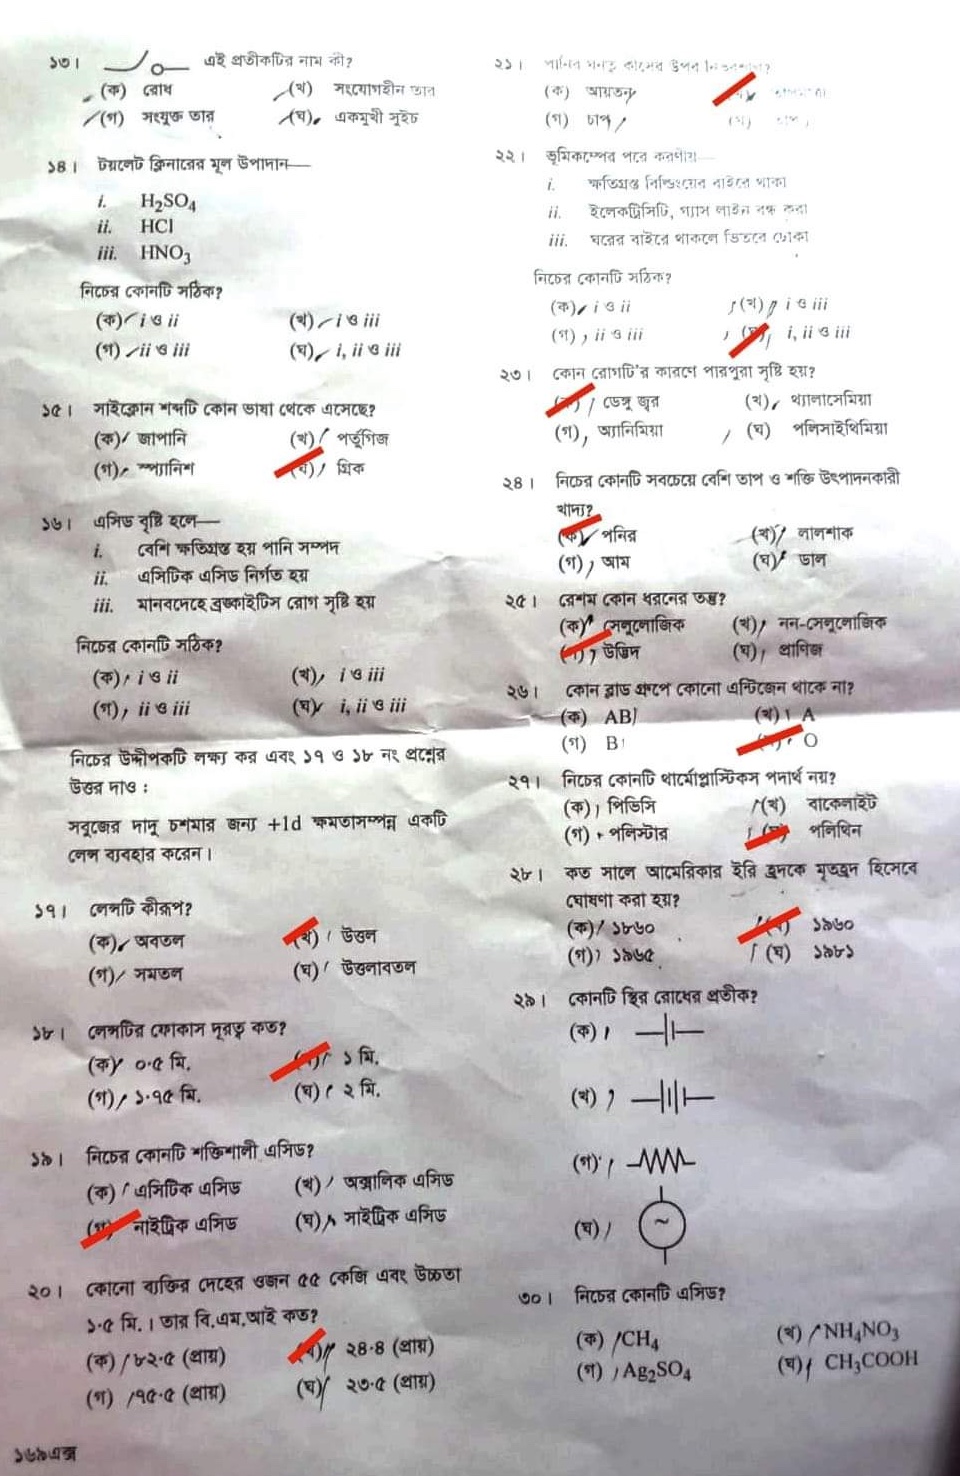 ১৩। এই প্রতীকটির নাম কী?
(ক) রোধ (খ) সংযোগহীন তার
(গ) সংযুক্ত তার (ঘ) একমুখী সুইচ
১৪। টয়লেট ক্লিনারের মূল উপাদান—
i. H₂SO₄
ii. HCl
iii. HNO₃
নিচের কোনটি সঠিক?
(ক) i ও ii (খ) i ও iii
(গ) ii ও iii (ঘ) i, ii ও iii
১৫। সাইক্লোন শব্দটি কোন ভাষা থেকে এসেছে?
(ক) জাপানি (খ) পর্তুগিজ
(গ) স্প্যানিশ (ঘ) গ্রিক
১৬। এসিড বৃষ্টি হলে—
i. বেশি ক্ষতিগ্রস্ত হয় পানি সম্পদ
ii. এসিটিক এসিড নির্গত হয়
iii. মানবদেহে ব্রঙ্কাইটিস রোগ সৃষ্টি হয়
নিচের কোনটি সঠিক?
(ক) i ও ii (খ) i ও iii
(গ) ii ও iii (ঘ) i, ii ও iii
নিচের উদ্দীপকটি লক্ষ্য কর এবং ১৭ ও ১৮ নং প্রশ্নের
উত্তর দাও :
সবুজের দাদু চশমার জন্য +1d ক্ষমতাসম্পন্ন একটি
লেন্স ব্যবহার করেন।
১৭। লেন্সটি কীরূপ?
(ক) অবতল (খ) উত্তল
(গ) সমতল (ঘ) উত্তলাবতল
১৮। লেন্সটির ফোকাস দূরত্ব কত?
(ক) ০·৫ মি. ১ মি.
(গ) ১·৭৫ মি. (ঘ) ২ মি.
১৯। নিচের কোনটি শক্তিশালী এসিড?
(ক) এসিটিক এসিড (খ) অক্সালিক এসিড
(গ) নাইট্রিক এসিড (ঘ) সাইট্রিক এসিড
২০। কোনো ব্যক্তির দেহের ওজন ৫৫ কেজি এবং উচ্চতা
১·৫ মি.। তার বি.এম.আই কত?
(ক) ৮২·৫ (প্রায়) ২৪·৪ (প্রায়)
(গ) ৭৫·৫ (প্রায়) (ঘ) ২৩·৫ (প্রায়)
১৬৯এক্স
২১। পানির ঘনত্ব কীসের উপর নির্ভরশীল?
(ক) আয়তন
(গ) চাপ
২২। ভূমিকম্পের পরে করণীয়—
i. ক্ষতিগ্রস্ত বিল্ডিংয়ের বাইরে থাকা
ii. ইলেকট্রিসিটি, গ্যাস লাইন বন্ধ করা
iii. ঘরের বাইরে থাকলে ভিতরে ঢোকা
নিচের কোনটি সঠিক?
(ক) i ও ii (খ) i ও iii
(গ) ii ও iii (ঘ) i, ii ও iii
২৩। কোন রোগটি'র কারণে পারপুরা সৃষ্টি হয়?
ডেঙ্গু জ্বর (খ) থ্যালাসেমিয়া
(গ) অ্যানিমিয়া (ঘ) পলিসাইথিমিয়া
২৪। নিচের কোনটি সবচেয়ে বেশি তাপ ও শক্তি উৎপাদনকারী
খাদ্য?
(ক) পনির (খ) লালশাক
(গ) আম (ঘ) ডাল
২৫। রেশম কোন ধরনের তন্তু?
(ক) সেলুলোজিক (খ) নন-সেলুলোজিক
উদ্ভিদ (ঘ) প্রাণিজ
২৬। কোন ব্লাড গ্রুপে কোনো এন্টিজেন থাকে না?
(ক) AB (খ) A
(গ) B O
২৭। নিচের কোনটি থার্মোপ্লাস্টিকস পদার্থ নয়?
(ক) পিভিসি (খ) বাকেলাইট
(গ) পলিস্টার (ঘ) পলিথিন
২৮। কত সালে আমেরিকার ইরি হ্রদকে মৃতহ্রদ হিসেবে
ঘোষণা করা হয়?
(ক) ১৮৬০ ১৯৬০
(গ) ১৯৬৫ (ঘ) ১৯৮১
২৯। কোনটি স্থির রোধের প্রতীক?
(ক)
(খ)
(গ)
(ঘ) ~
৩০। নিচের কোনটি এসিড?
(ক) CH₄ (খ) NH₄NO₃
(গ) Ag₂SO₄ (ঘ) CH₃COOH